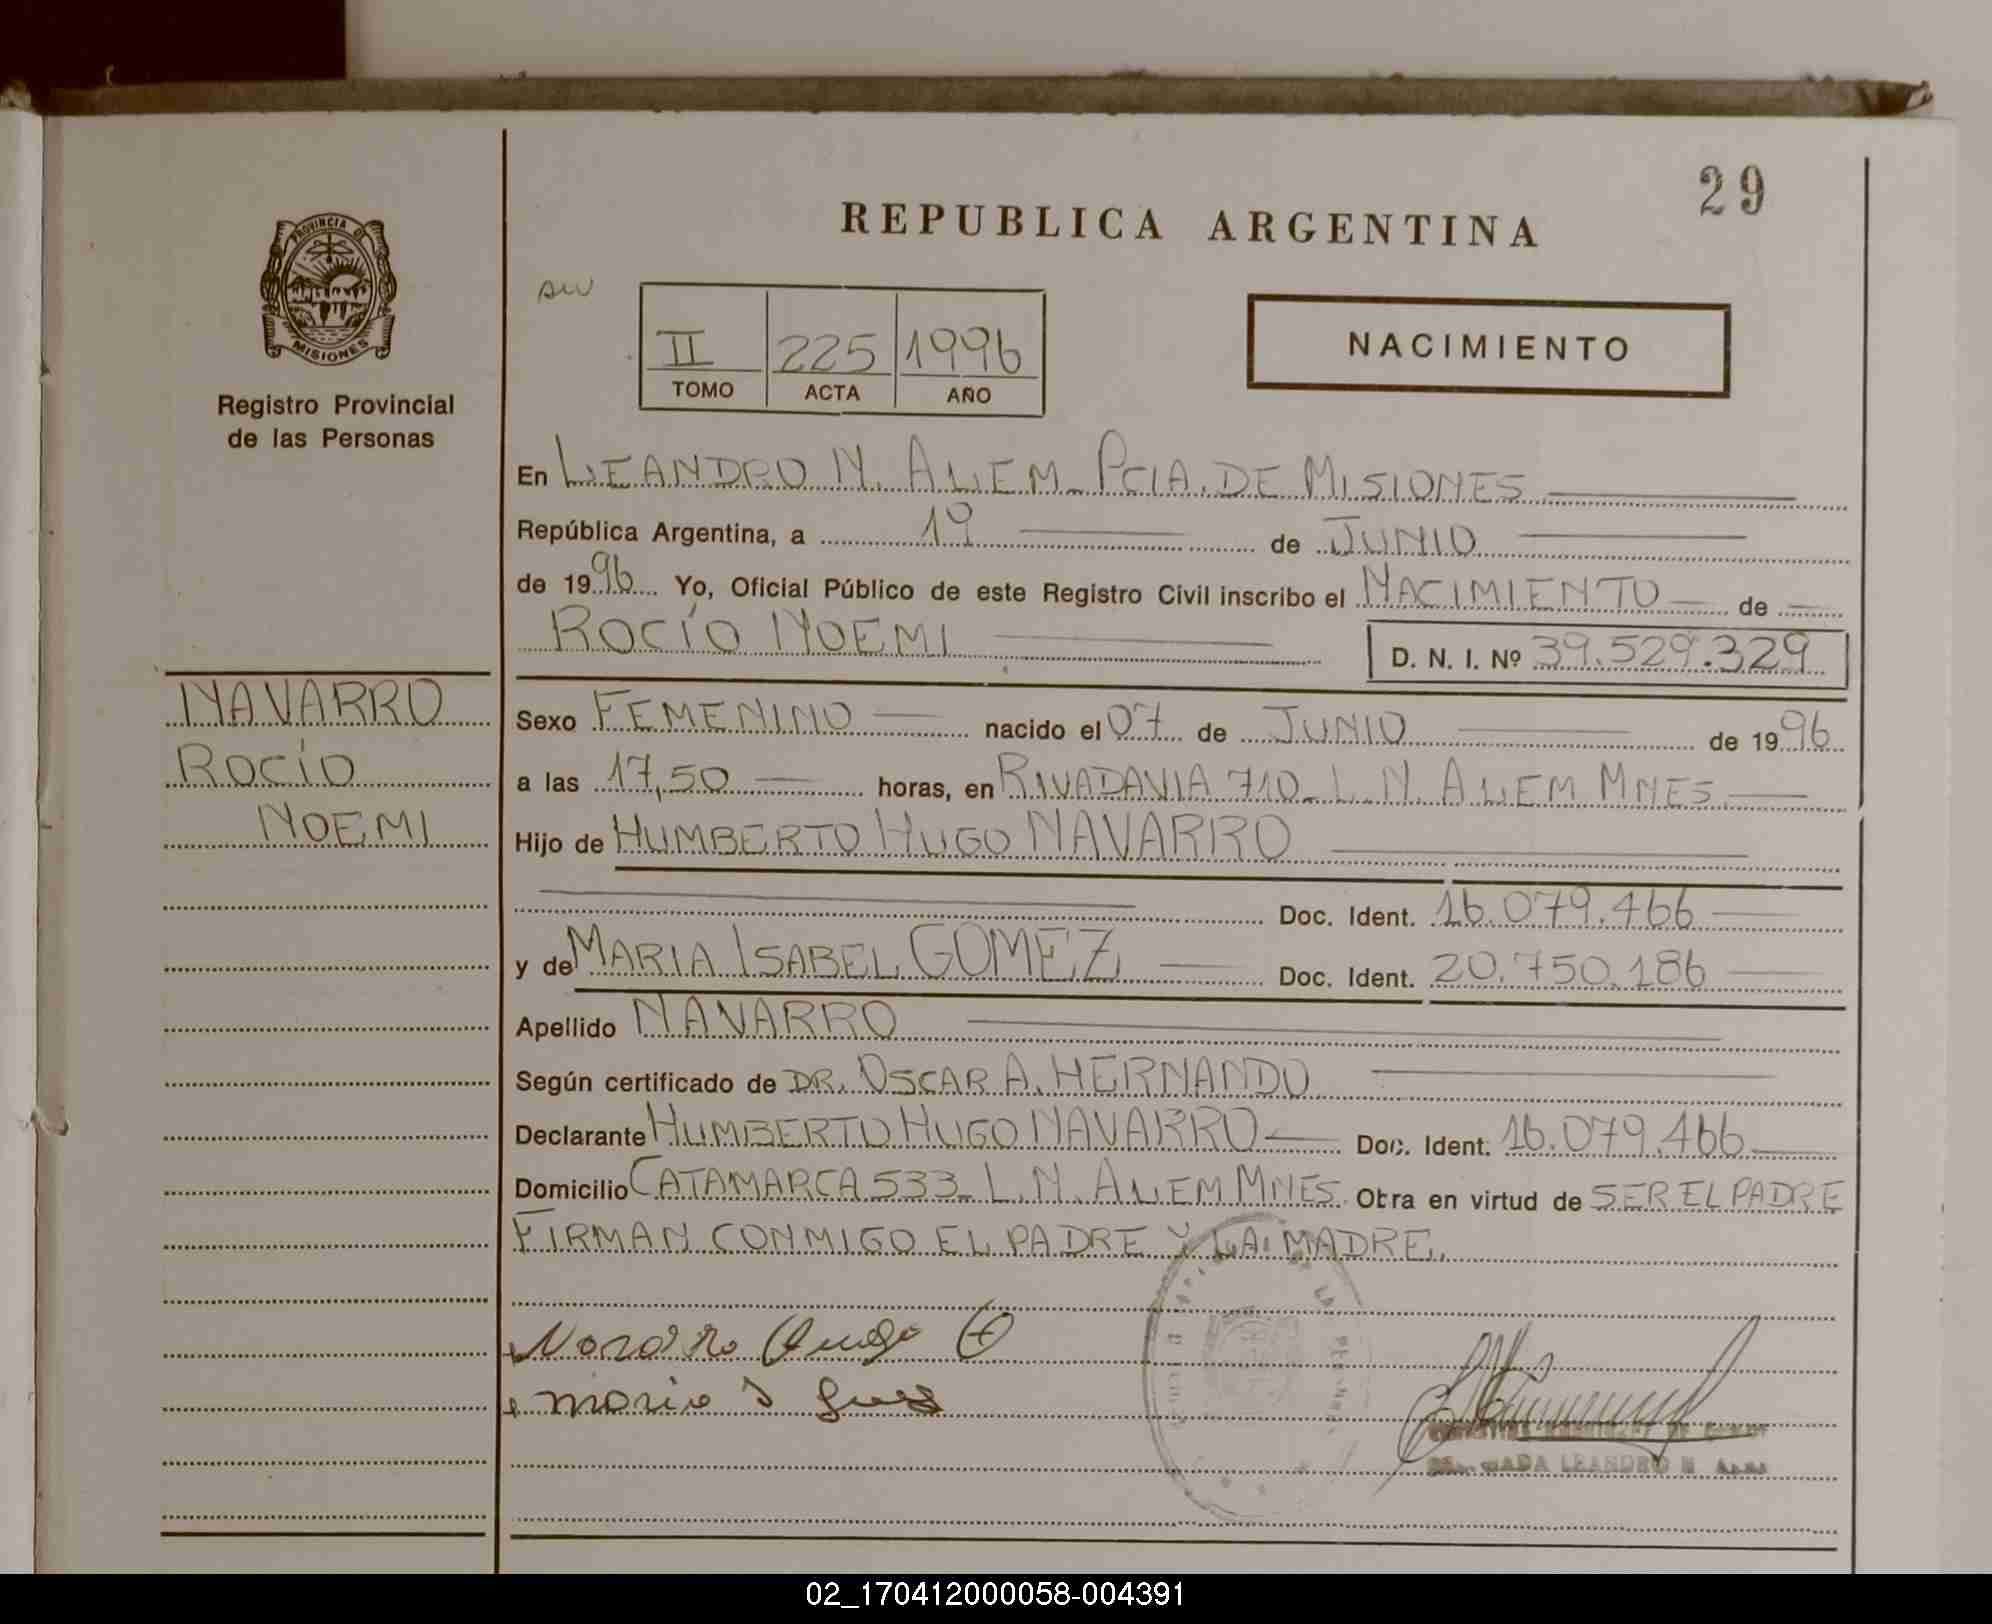 29
REPUBLICA ARGENTINA
PROVINCIA DE
MISIONES
Registro Provincial
de las Personas
II 225 1996
TOMO ACTA AÑO
NACIMIENTO
En LEANDRO N. ALEM - PCIA. DE MISIONES
República Argentina, a 19 de JUNIO
de 1996 Yo, Oficial Público de este Registro Civil inscribo el NACIMIENTO de
ROCÍO NOEMI D. N. I. Nº 39.529.329
NAVARRO
ROCÍO
NOEMI
Sexo FEMENINO nacido el 07 de JUNIO de 1996
a las 17,50 horas, en RIVADAVIA 710 - L. N. ALEM MNES.
Hijo de HUMBERTO HUGO NAVARRO
Doc. Ident. 16.079.466
y de MARIA ISABEL GOMEZ Doc. Ident. 20.750.186
Apellido NAVARRO
Según certificado de DR. OSCAR A. HERNANDO
Declarante HUMBERTO HUGO NAVARRO Doc. Ident. 16.079.466
Domicilio CATAMARCA 533 - L. N. ALEM MNES. Obra en virtud de SER EL PADRE
FIRMAN CONMIGO EL PADRE Y LA MADRE.
LEANDRO N
02_170412000058-004391